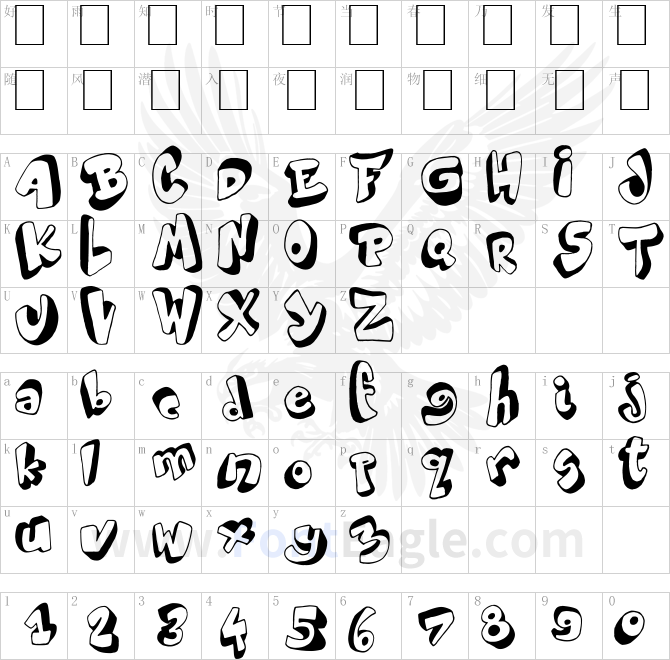 好 雨 知 时 节 当 春 乃 发 生
随 风 潜 入 夜 润 物 细 无 声
A B C D E F G H I J
A B C D E F G H i J
K L M N O P Q R S T
K L M N O P Q R S T
U V W X Y Z
U V W X Y Z
a b c d e f g h i j
a b c d e f g h i j
k l m n o p q r s t
k l m n o p q r s t
u v w x y z
u v w x y z
www.FontEagle.com
1 2 3 4 5 6 7 8 9 0
1 2 3 4 5 6 7 8 9 0